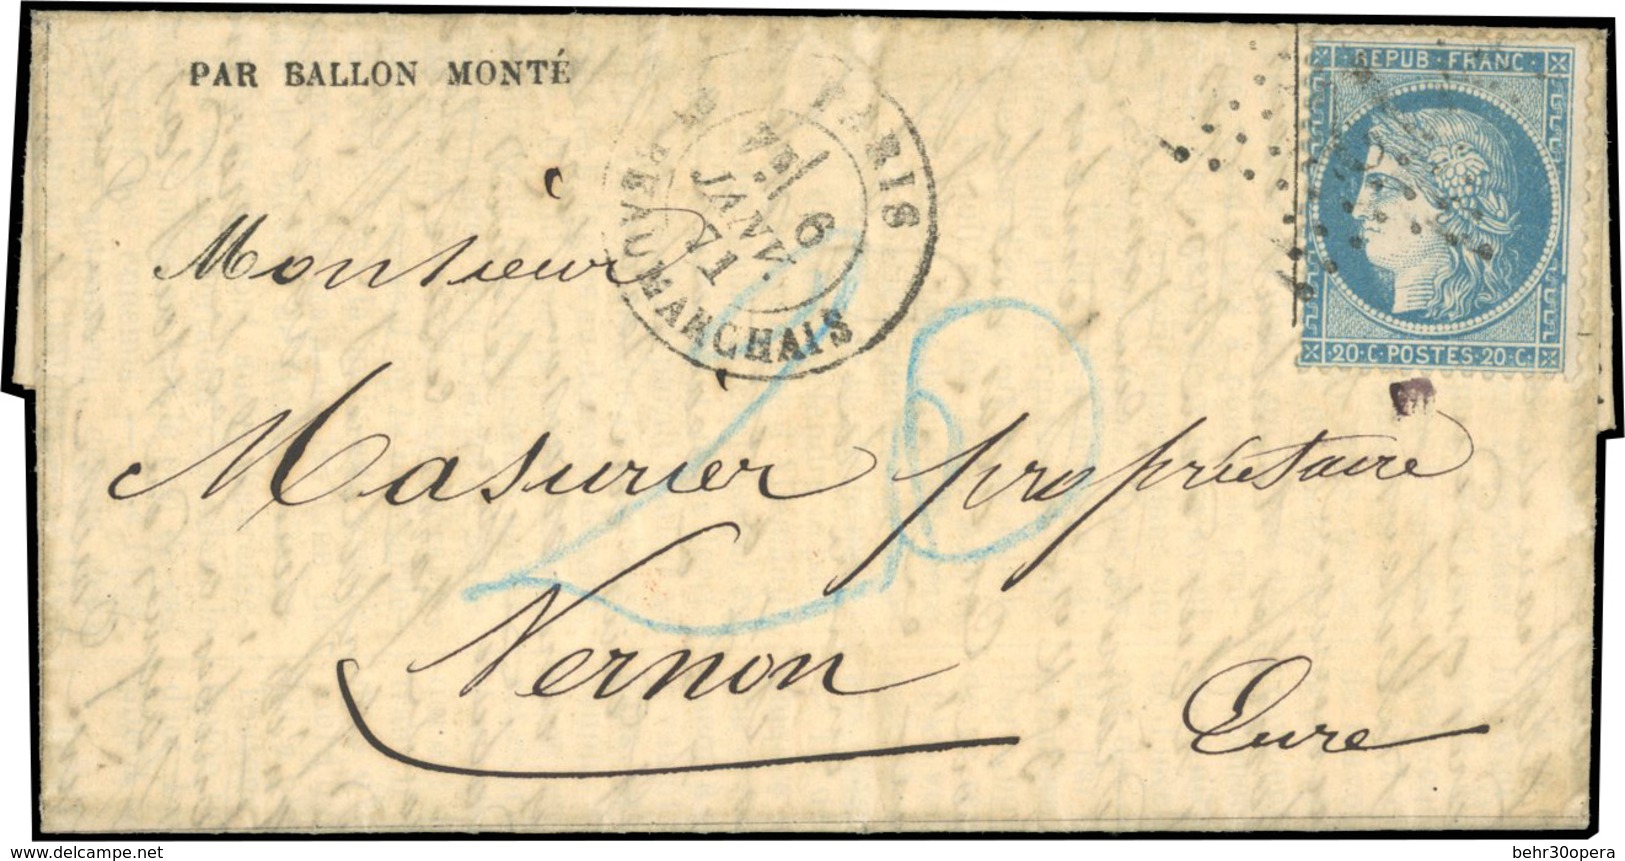 PAR BALLON MONTÉ
PARIS
6
JANV.
71
BEAUMARCHAIS
REPUB·FRANC·
20·C·POSTES·20·C·
Monsieur
Masurier propriétaire
20
Vernon
Eure
delcampe.net
behr30opera